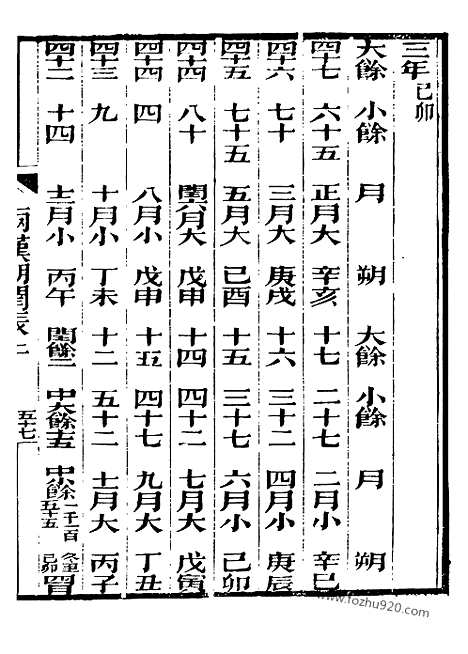 三年己卯
大餘 小餘 月 朔 大餘 小餘 月 朔
四十七 六十五 正月大 辛亥 十七 二十七 二月小 辛巳
四十六 七十 三月大 庚戌 十六 三十二 四月小 庚辰
四十五 七十五 五月大 己酉 十五 三十七 六月小 己卯
四十四 八十 閏六月大 戊申 十四 四十二 七月大 戊寅
四十四 四 八月小 戊申 十五 四十七 九月大 丁丑
四十三 九 十月小 丁未 十二 五十二 十一月大 丙子
四十二 十四 十二月小 丙午 閏餘二 中大餘十五 中小餘一千一百五十五 冬至己卯
兩漢朔閏表二 五十七
www.fozhu920.com